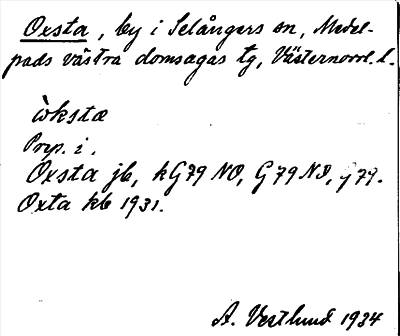 Oxsta, by i Selångers sn, Medel-
pads västra domsagas tg, Västernorrl. l.
ὼkstæ
Prep. i.
Oxsta jb, k G79 NO, G79 NI, G79.
Oxta kb 1931.
A. Vestlund 1934